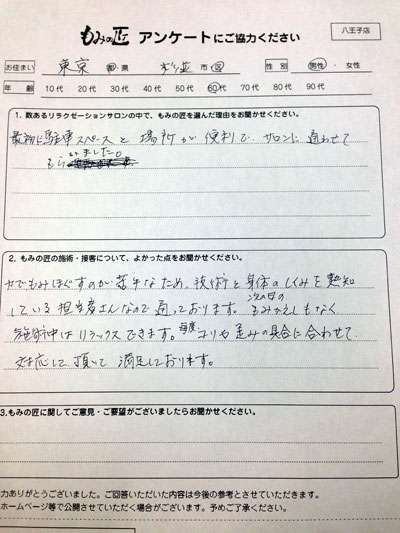 八王子店
もみの匠 アンケートにご協力ください
お住まい 東京 都・県 杉並 市・区 性別 男性・女性
年齢 10代 20代 30代 40代 50代 60代 70代 80代 90代
1. 数あるリラクゼーションサロンの中で、もみの匠を選んだ理由をお聞かせください。
最初に駐車スペースと場所が便利で、サロンに通わせて
もらいました。
2. もみの匠の施術・接客について、よかった点をお聞かせください。
力でもみほぐすのが苦手なため、技術と身体のしくみを熟知
している担当者さんなので通っております。次の日のもみかえしもなく
施術中はリラックスできます。毎度コリや歪みの具合に合わせて
対応して頂いて満足しております。
3.もみの匠に関してご意見・ご要望がございましたらお聞かせください。
力ありがとうございました。ご回答いただいた内容は今後の参考とさせていただきます。
ホームページ等で公開させていただく場合がございます。予めご了承ください。